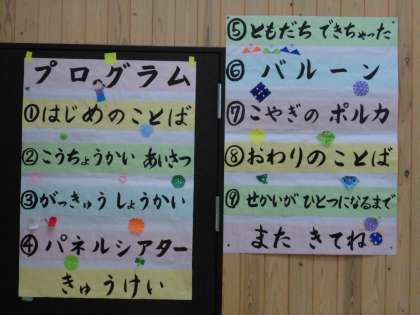 プログラム
①はじめのことば
②こうちょうかい あいさつ
③がっきゅう しょうかい
④パネルシアター
きゅうけい
⑤ともだち できちゃった
⑥バルーン
⑦こやぎの ポルカ
⑧おわりの ことば
⑨せかいが ひとつになるまで
また きてね